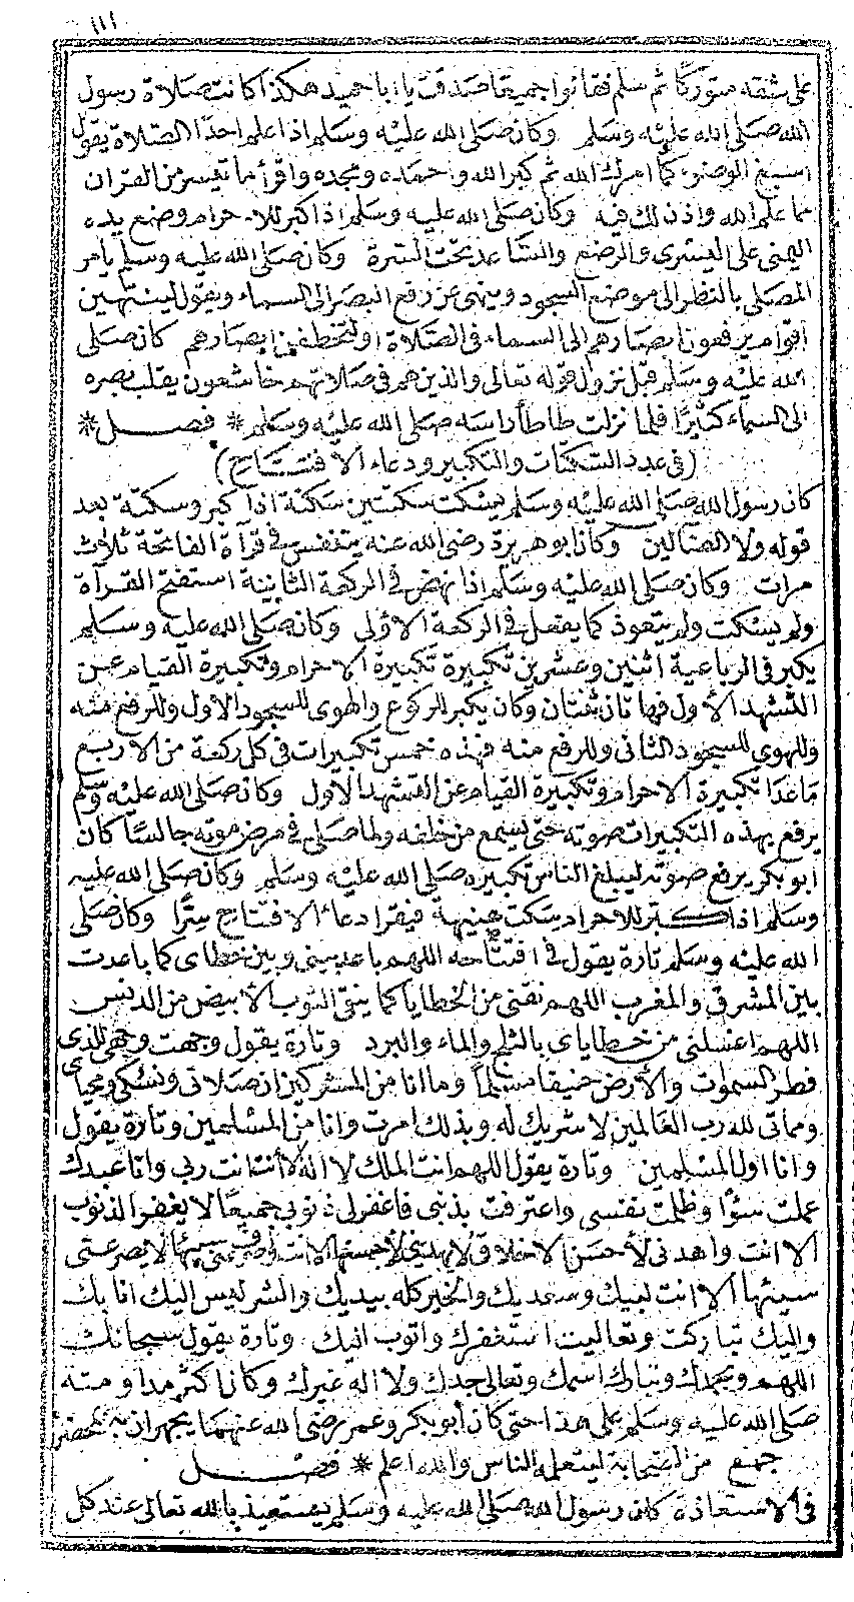 ١١١
على شقه متوركا ثم سلم فقالوا جميعا صدقت يا ابا حميد هكذا كانت صلاة رسول
الله صلى الله عليه وسلم وكان صلى الله عليه وسلم اذا علم احدا الصلاة يقول
اسبغ الوضوء كما امرك الله ثم كبر الله واحمده ومجده واقرأ ما تيسر من القران
مما علم الله واذن لك فيه وكان صلى الله عليه وسلم اذا كبر للاحرام وضع يده
اليمنى على اليسرى والرضغ والساعد تحت السرة وكان صلى الله عليه وسلم يأمر
المصلى بالنظر الى موضع السجود وينهى عن رفع البصر الى السماء ويقول لينتهين
اقوام يرفعون ابصارهم الى السماء فى الصلاة او لتخطفن ابصارهم كان صلى
الله عليه وسلم قبل نزول قوله تعالى والذين هم فى صلاتهم خاشعون يقلب بصره
الى السماء كثيرا فلما نزلت طاطأ راسه صلى الله عليه وسلم * فصل *
(فى عدد السكتات والتكبير ودعاء الافتتاح)
كان رسول الله صلى الله عليه وسلم يسكت سكتتين سكتة اذا كبر وسكتة بعد
قوله ولا الضالين وكان ابو هريرة رضى الله عنه يتنفس فى قرآة الفاتحة ثلاث
مرات وكان صلى الله عليه وسلم اذا نهض فى الركعة الثانية استفتح القرآة
ولم يسكت ولم يتعوذ كما يفعل فى الركعة الاولى وكان صلى الله عليه وسلم
يكبر فى الرباعية اثنين وعشرين تكبيرة تكبيرة الاحرام وتكبيرة القيام عن
التشهد الأول فهاتان ثنتان وكان يكبر للركوع والهوى للسجود الاول وللرفع منه
وللهوي للسجود الثانى وللرفع منه فهذه خمس تكبيرات فى كل ركعة من الاربع
ماعدا تكبيرة الاحرام وتكبيرة القيام عن التشهد الاول وكان صلى الله عليه وسلم
يرفع بهذه التكبيرات صوته حتى يسمع من خلفه ولما صلى فى مرض موته جالسا كان
ابو بكر يرفع صوته ليبلغ الناس تكبيره صلى الله عليه وسلم وكان صلى الله عليه
وسلم اذا كبر للاحرام سكت هنيهة فيقرا دعاء الافتتاح سرًا وكان صلى
الله عليه وسلم تارة يقول فى افتتاحه اللهم باعد بينى وبين خطاياى كما باعدت
بين المشرق والمغرب اللهم نقنى من الخطايا كما ينقى الثوب الابيض من الدنس
اللهم اغسلنى من خطاياى بالثلج والماء والبرد وتارة يقول وجهت وجهى للذى
فطر السموات والأرض حنيفا مسلماً وما انا من المشركين ان صلاتى ونسكى ومحياى
ومماتى لله رب العالمين لا شريك له وبذلك امرت وانا من المسلمين وتارة يقول
وانا اول المسلمين وتارة يقول اللهم انت الملك لا اله الا أنت انت ربى وانا عبدك
عملت سوًا وظلمت نفسى واعترفت بذنبى فاغفر لى ذنوبى جميعًا لا يغفر الذنوب
الا انت واهدنى لأحسن الاخلاق لا يهدى لأحسنها الا انت واصرف عنى سيئها لا يصرف عنى
سيئها الا انت لبيك وسعديك والخير كله بيديك والشر ليس اليك انا بك
واليك تباركت وتعاليت استغفرك واتوب اليك وتارة يقول سبحانك
اللهم وبحمدك وتبارك اسمك وتعالى جدك ولا اله غيرك وكان اكثر مداومته
صلى الله عليه وسلم على هذا حتى كان أبو بكر وعمر رضى الله عنهما يجهران به بحضرة
جمع من الصحابة ليتعلمه الناس والله اعلم * فصل
فى الاستعاذة كان رسول الله صلى الله عليه وسلم يستعيذ بالله تعالى عند كل